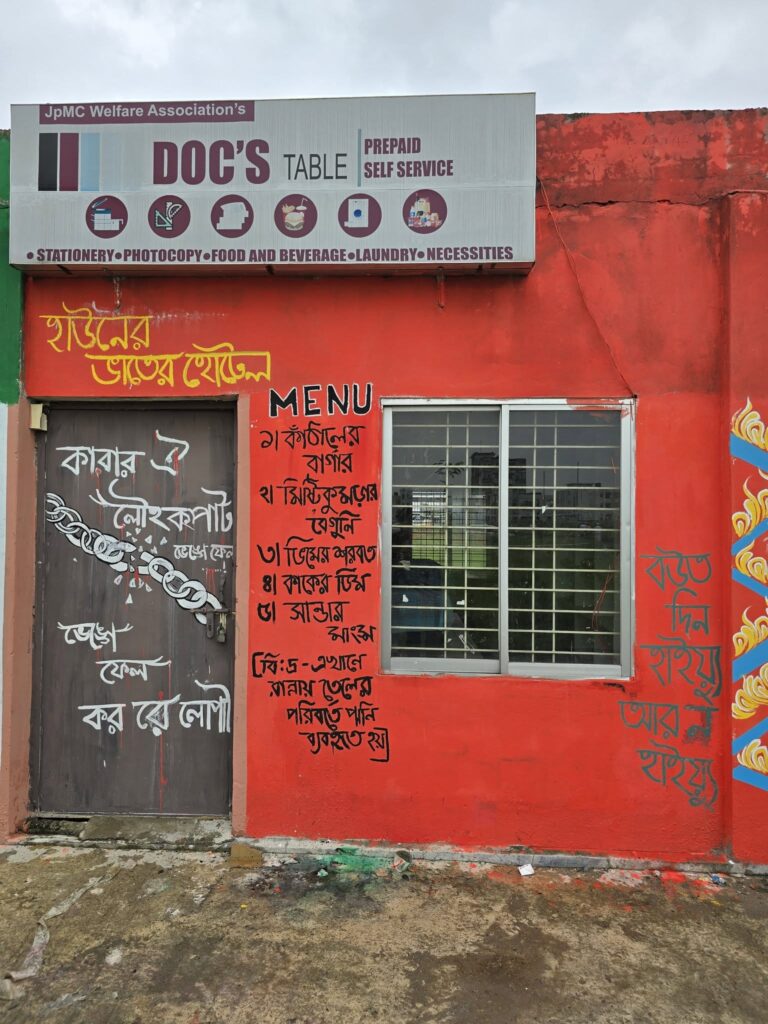 JpMC Welfare Association's
DOC'S TABLE
PREPAID
SELF SERVICE
•STATIONERY•PHOTOCOPY•FOOD AND BEVERAGE•LAUNDRY•NECESSITIES
হাউনের
ভাতের হোটেল
কারার ঐ
লৌহকপাট
ভেঙ্গে ফেল
ভেঙ্গে
ফেল
কর রে লোপী
MENU
১। কাঁঠালের
বার্গার
২। মিষ্টিকুমড়ার
বেগুনি
৩। ডিমের শরবত
৪। কাকের ডিম
৫। সান্ডার
মাংস
[বি:দ্র - এখানে
রান্নায় তেলের
পরিবর্তে পানি
ব্যবহৃত হয়]
বউত
দিন
হাইয়্যু
আর ন
হাইয়্যু